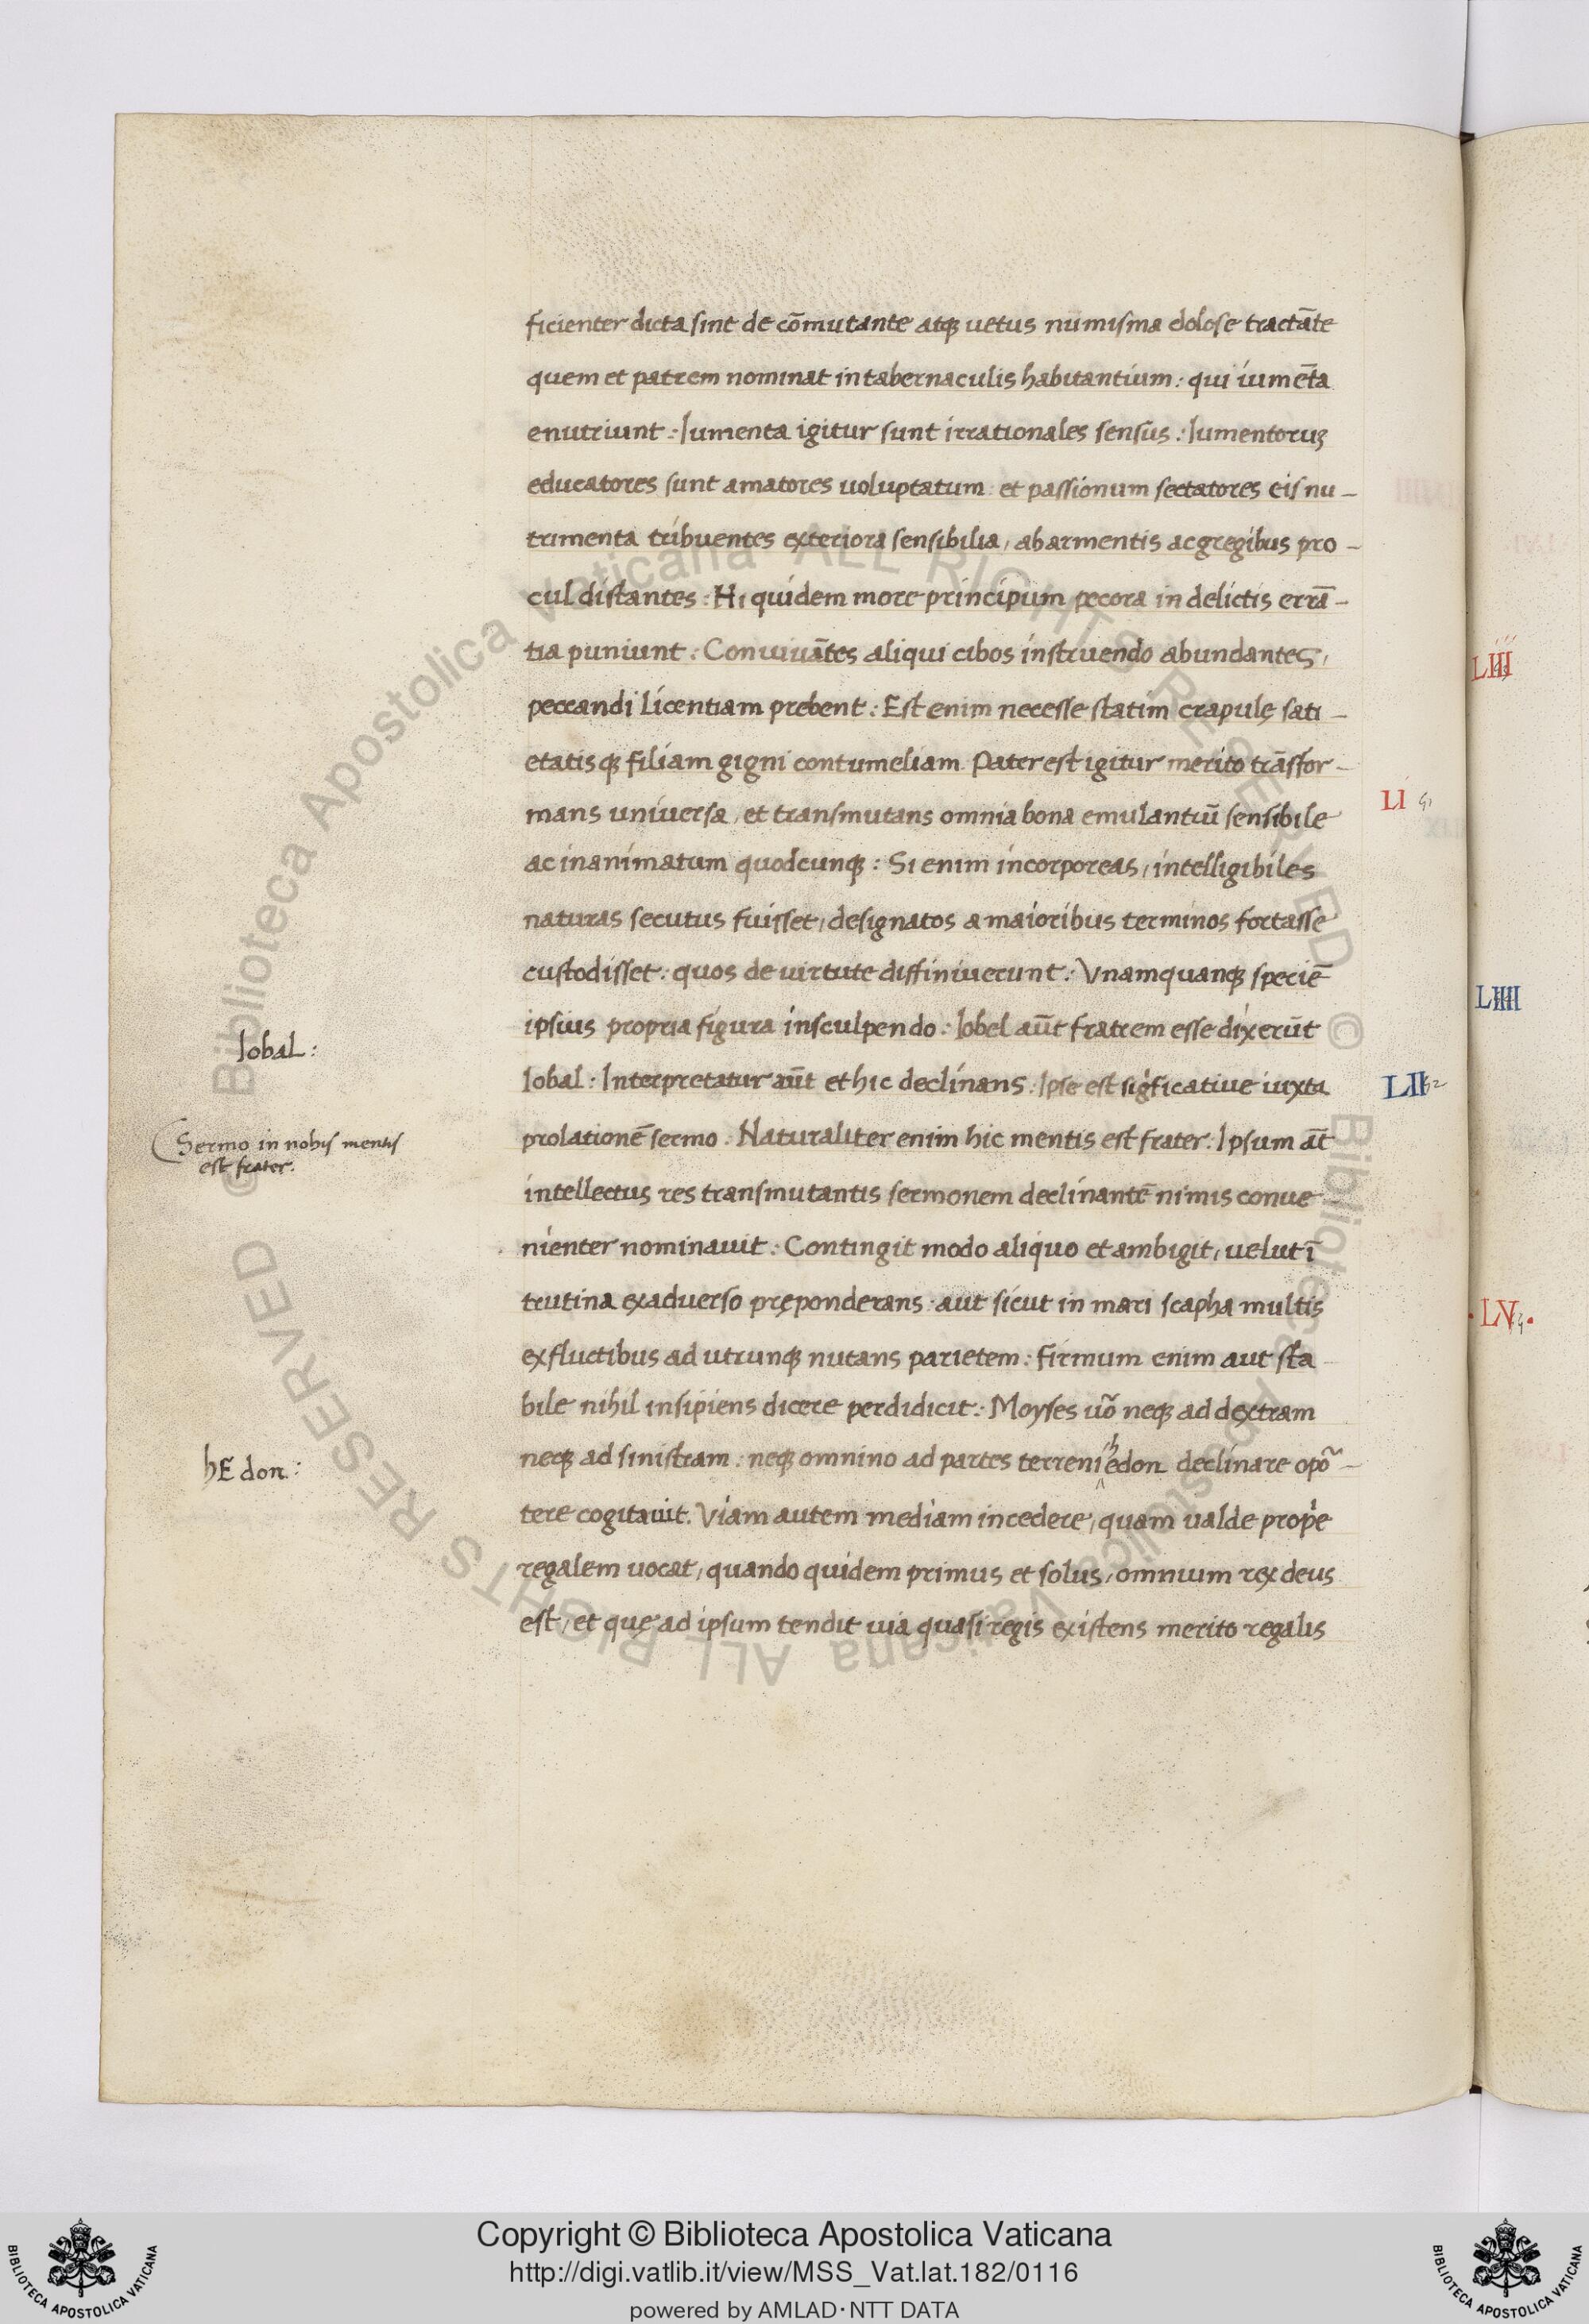 ficienter dicta sint de cōmutante atq; uetus numisma dolose tractāte
quem et patrem nominat in tabernaculis habitantium : qui iumēta
enutriunt : Iumenta igitur sunt irrationales sensus : Iumentoruz
educatores sunt amatores uoluptatum et passionum sectatores eis nu-
trimenta tribuentes exteriora sensibilia, ab armentis ac gregibus pro-
cul distantes : Hi quidem more principum pecora in delictis errā-
tia puniunt : Conuiuātes aliqui cibos instruendo abundantes,
peccandi licentiam prebent : Est enim necesse statim crapulę sati-
etatisq; filiam gigni contumeliam. Pater est igitur merito trāsfor-
mans uniuersa, et transmutans omnia bona emulantiū sensibile
ac inanimatum quodcunq; : Si enim incorporeas, intelligibiles
naturas secutus fuisset, designatos a maioribus terminos fortasse
custodisset : quos de uirtute diffiniuerunt : Vnamquanq; speciē
ipsius propria figura insculpendo : Iobel aūt fratrem esse dixerūt
Iobal : Interpretatur aūt et hic declinans : Ipse est sigficatiue iuxta
prolationē sermo. Naturaliter enim hic mentis est frater : Ipsum āt
intellectus res transmutantis sermonem declinantē nimis conue-
nienter nominauit : Contingit modo aliquo et ambigit, uelut ī
trutina exaduerso pręponderans aut sicut in mari scapha multis
ex fluctibus ad utrunq; nutans parietem : firmum enim aut sta-
bile nihil insipiens dicere perdidicit : Moyses uō neq; ad dextram
neq; ad sinistram : neq; omnino ad partes terreni hedon declinare opō-
tere cogitauit. Viam autem mediam incedere, quam ualde prope
regalem uocat, quando quidem primus et solus, omnium rex deus
est, et quę ad ipsum tendit uia quasi regis existens merito regalis
Iobal :
Sermo in nobis mentis
est frater.
hEdon :
LI
LII
LIII
LIIII
·LV·
© Biblioteca Apostolica Vaticana ALL RIGHTS RESERVED © Biblioteca Apostolica Vaticana ALL RIGHTS RESERVED
Copyright © Biblioteca Apostolica Vaticana
http://digi.vatlib.it/view/MSS_Vat.lat.182/0116
powered by AMLAD·NTT DATA
BIBLIOTECA APOSTOLICA VATICANA
BIBLIOTECA APOSTOLICA VATICANA